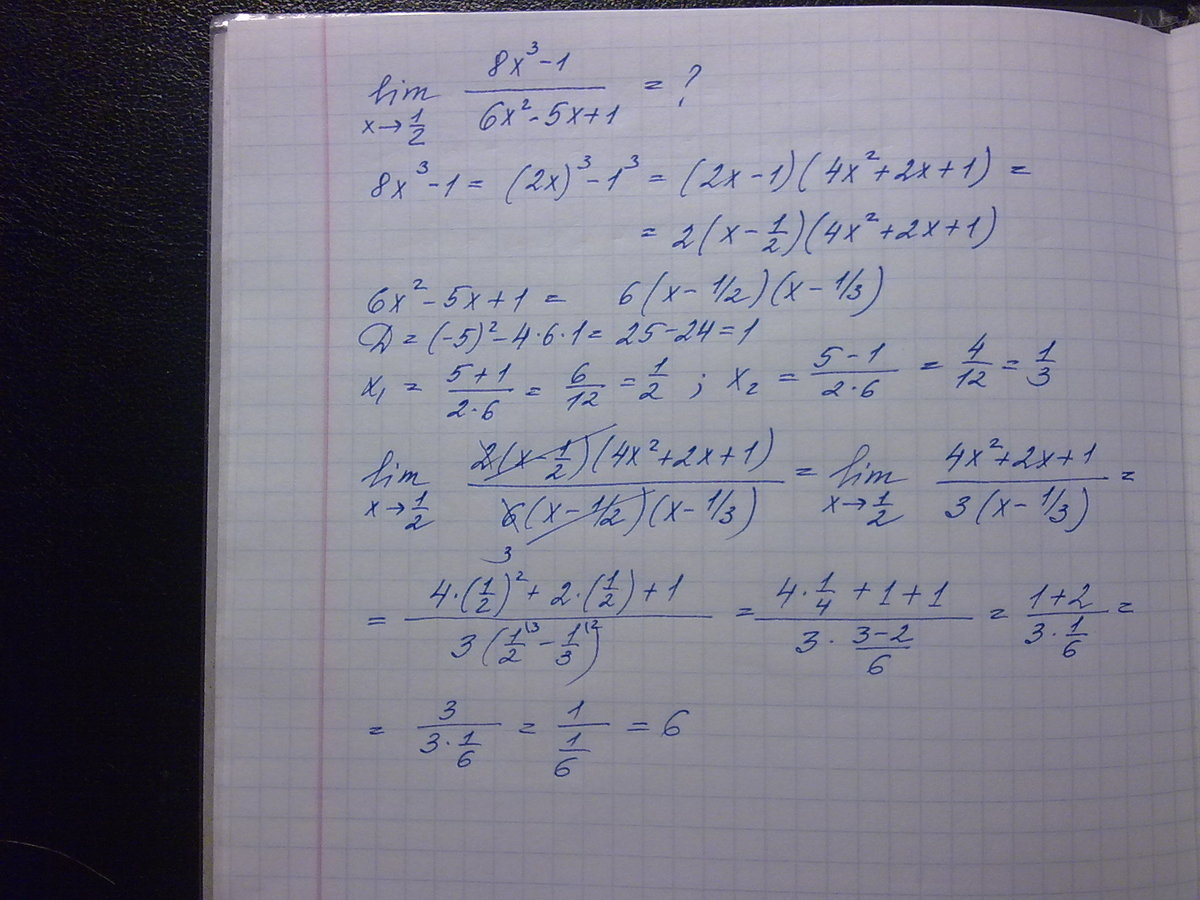 lim x→1/2 (8x³-1)/(6x²-5x+1) = ?
8x³-1 = (2x)³-1³ = (2x-1)(4x²+2x+1) =
= 2(x-1/2)(4x²+2x+1)
6x²-5x+1 = 6(x-1/2)(x-1/3)
D = (-5)²-4·6·1 = 25-24 = 1
x₁ = (5+1)/(2·6) = 6/12 = 1/2 ; x₂ = (5-1)/(2·6) = 4/12 = 1/3
lim x→1/2 (2(x-1/2)(4x²+2x+1))/(6(x-1/2)(x-1/3)) = lim x→1/2 (4x²+2x+1)/(3(x-1/3)) =
3
= (4·(1/2)²+2·(1/2)+1)/(3(1/2\3-1/3\2)) = (4·1/4+1+1)/(3·(3-2)/6) = (1+2)/(3·1/6) =
= 3/(3·1/6) = 1/(1/6) = 6